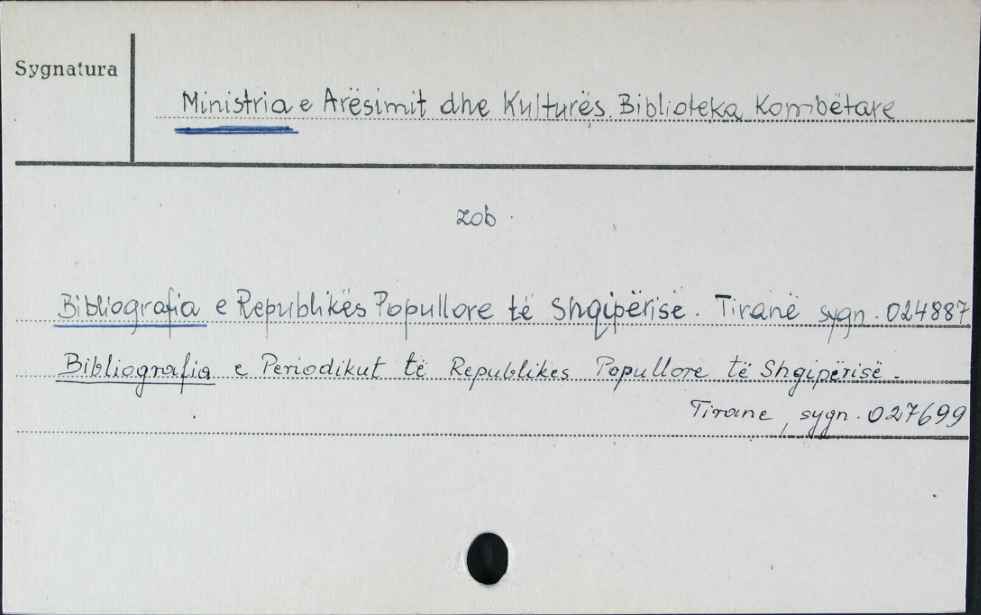 Sygnatura
Ministria e Arësimit dhe Kulturës. Biblioteka Kombëtare
zob.
Bibliografia e Republikës Popullore të Shqipërisë. Tiranë sygn. 024887
Bibliografia e Periodikut të Republikës Popullore të Shqipërisë.
Tirane, sygn. 027699